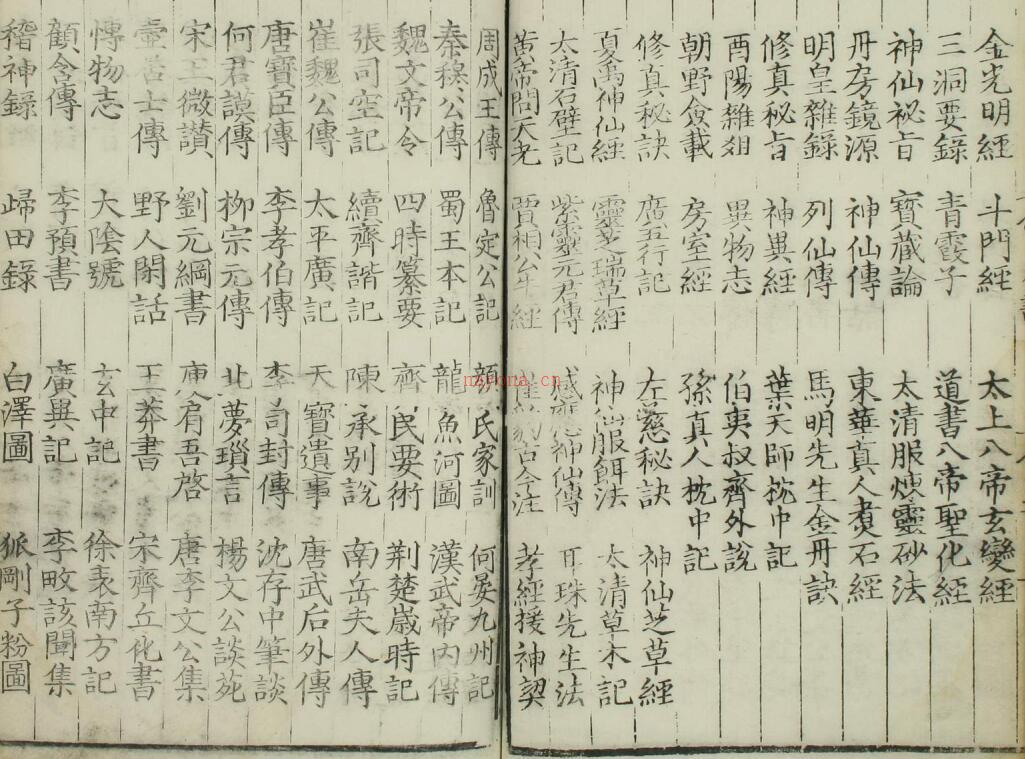 金光明經 斗門經 太上八帝玄變經
三洞要錄 青霞子 道書八帝聖化經
神仙祕旨 寶藏論 太清服煉靈砂法
丹房鏡源 神仙傳 東華真人煑石經
明皇雜錄 列仙傳 馬明先生金丹訣
修真秘旨 神異經 葉天師枕中記
酉陽雜俎 異物志 伯夷叔齊外說
朝野僉載 房室經 孫真人枕中記
修真秘訣 廣五行記 左慈秘訣 神仙芝草經
夏禹神仙經 靈芝瑞草經 神仙服餌法 太清草木記
太清石壁記 紫靈元君傳 感應神仙傳 耳珠先生法
黃帝問天老 賈相公牛經 崔豹古今注 孝經援神契
周成王傳 魯定公記 顏氏家訓 何晏九州記
秦穆公傳 蜀王本記 龍魚河圖 漢武帝內傳
魏文帝令 四時纂要 齊民要術 荆楚歲時記
張司空記 續齊諧記 陳承别說 南岳夫人傳
崔魏公傳 太平廣記 天寶遺事 唐武后外傳
唐寶臣傳 李孝伯傳 李司封傳 沈存中筆談
何君謨傳 柳宗元傳 北夢瑣言 楊文公談苑
宋王微讚 劉元綱書 庾肩吾啓 唐李文公集
壺居士傳 野人閑話 王莽書 宋齊丘化書
博物志 大隂號 玄中記 徐表南方記
顧含傳 李預書 廣異記 李畋該聞集
稽神錄 歸田錄 白澤圖 狐剛子粉圖